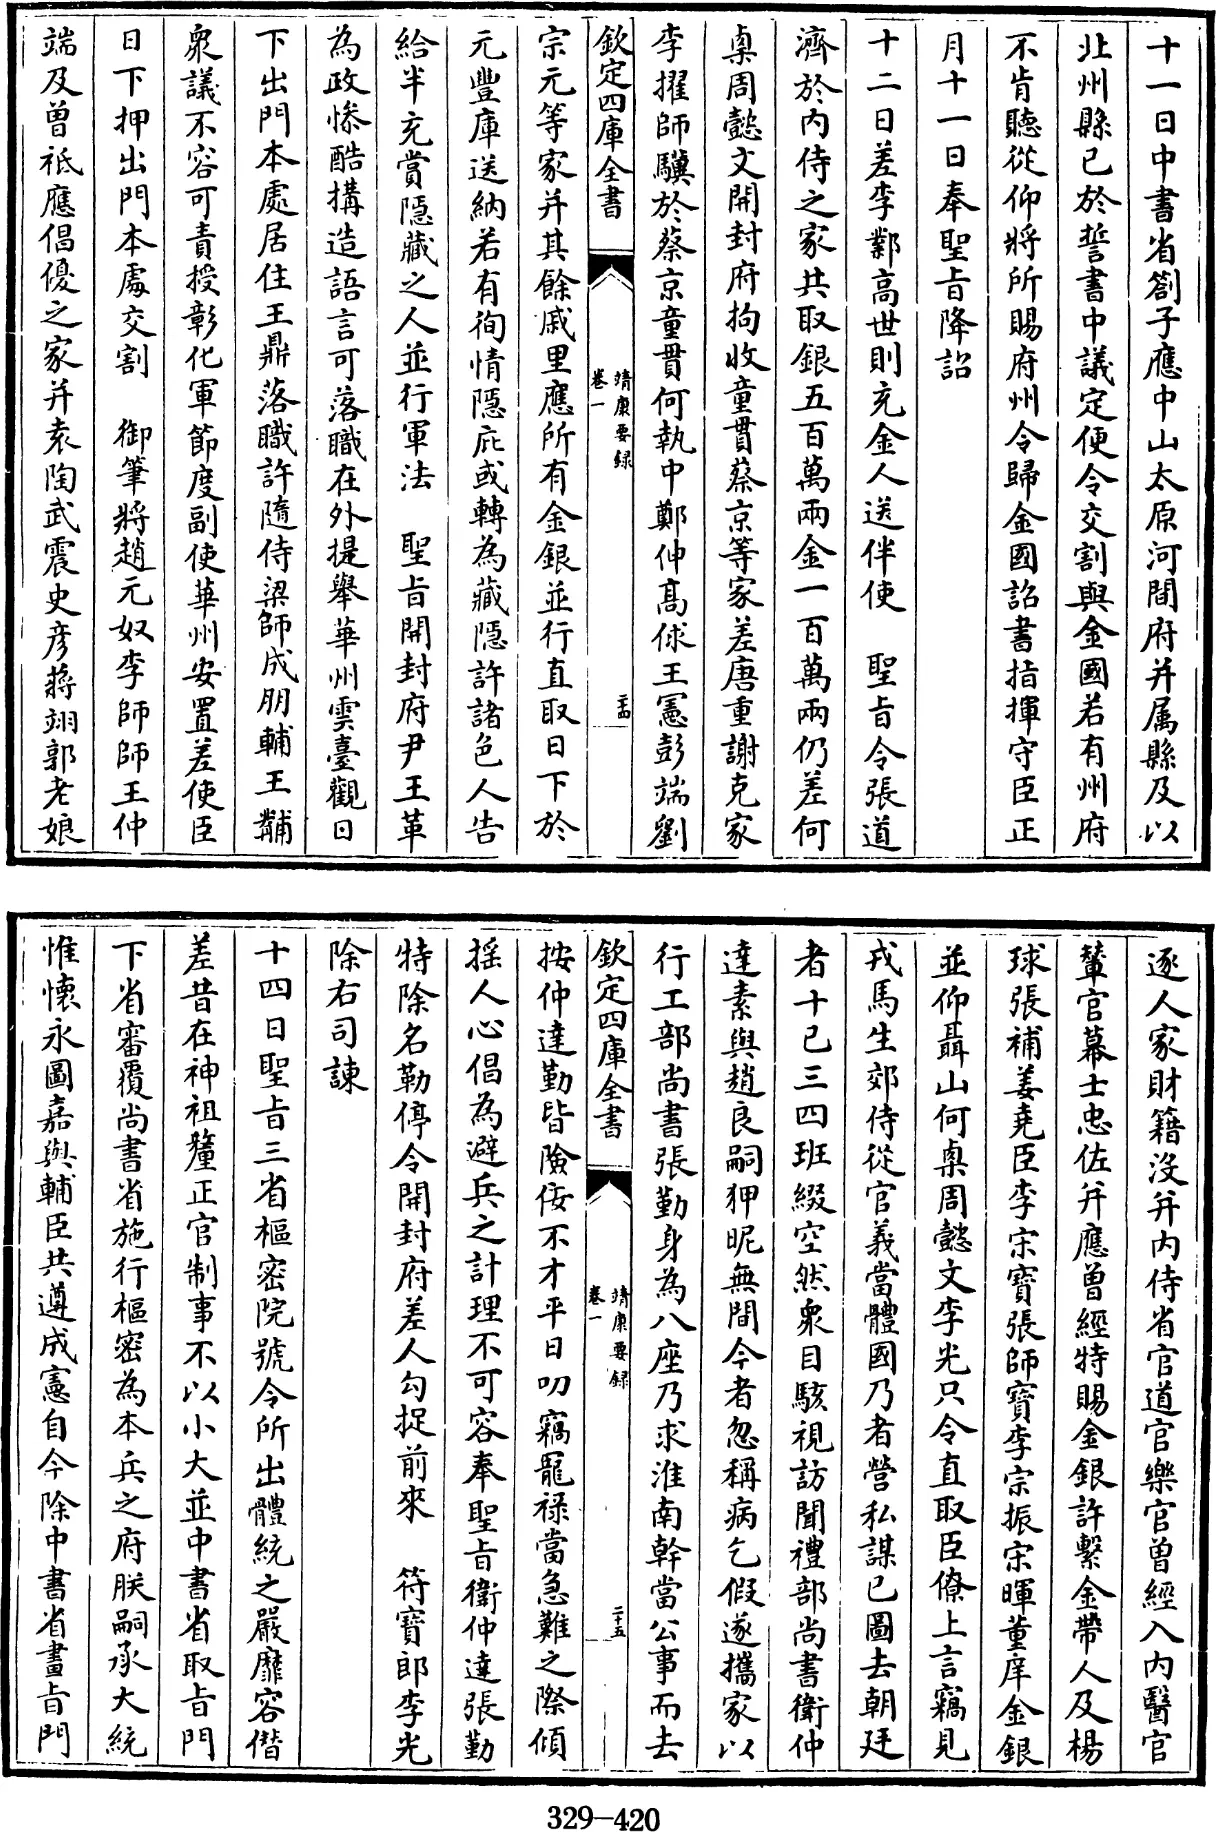 十一日中書省劄子應中山太原河間府并属縣及以
北州縣已於誓書中議定便令交割與金國若有州府
不肯聽從仰將所賜府州令歸金國詔書指揮守臣正
月十一日奉聖旨降詔
十二日差李鄴高世則充金人送伴使　聖旨令張道
濟於內侍之家共取銀五百萬兩金一百萬兩仍差何
㮚周懿文開封府拘收童貫蔡京等家差唐重謝克家
李擢師驥於蔡京童貫何執中鄭伸高俅王憲彭端劉
欽定四庫全書
靖康要録
卷一
二十四
宗元等家并其餘戚里應所有金銀並行直取日下於
元豐庫送納若有徇情隱庇或轉為藏隱許諸色人告
給半充賞隱藏之人並行軍法　聖旨開封府尹王革
為政慘酷搆造語言可落職在外提舉華州雲臺觀日
下出門本處居住王鼎落職許隨侍梁師成朋輔王黼
衆議不容可責授彰化軍節度副使華州安置差使臣
日下押出門本處交割　御筆將趙元奴李師師王仲
端及曾祗應倡優之家并袁陶武震史彦蔣翊郭老娘
逐人家財籍沒并內侍省官道官樂官曾經入內醫官
輦官幕士忠佐并應曾經特賜金銀許繫金帶人及楊
球張補姜堯臣李宗寶張師寶李宗振宋暉董庠金銀
並仰聶山何㮚周懿文李光只令直取臣僚上言竊見
戎馬生郊侍從官義當體國乃者營私謀已圖去朝廷
者十已三四班綴空然衆目駭視訪聞禮部尚書衛仲
達素與趙良嗣狎昵無間今者忽稱病乞假遂攜家以
行工部尚書張勤身為八座乃求淮南幹當公事而去
欽定四庫全書
靖康要録
卷一
二十五
按仲達勤皆險佞不才平日叨竊寵祿當急難之際傾
揺人心倡為避兵之計理不可容奉聖旨衛仲達張勤
特除名勒停令開封府差人勾捉前來　符寶郎李光
除右司諫
十四日聖旨三省樞密院號令所出體統之嚴靡容僭
差昔在神祖釐正官制事不以小大並中書省取旨門
下省審覆尚書省施行樞密為本兵之府朕嗣承大統
惟懐永圖嘉與輔臣共遵成憲自今除中書省畫旨門
329-420